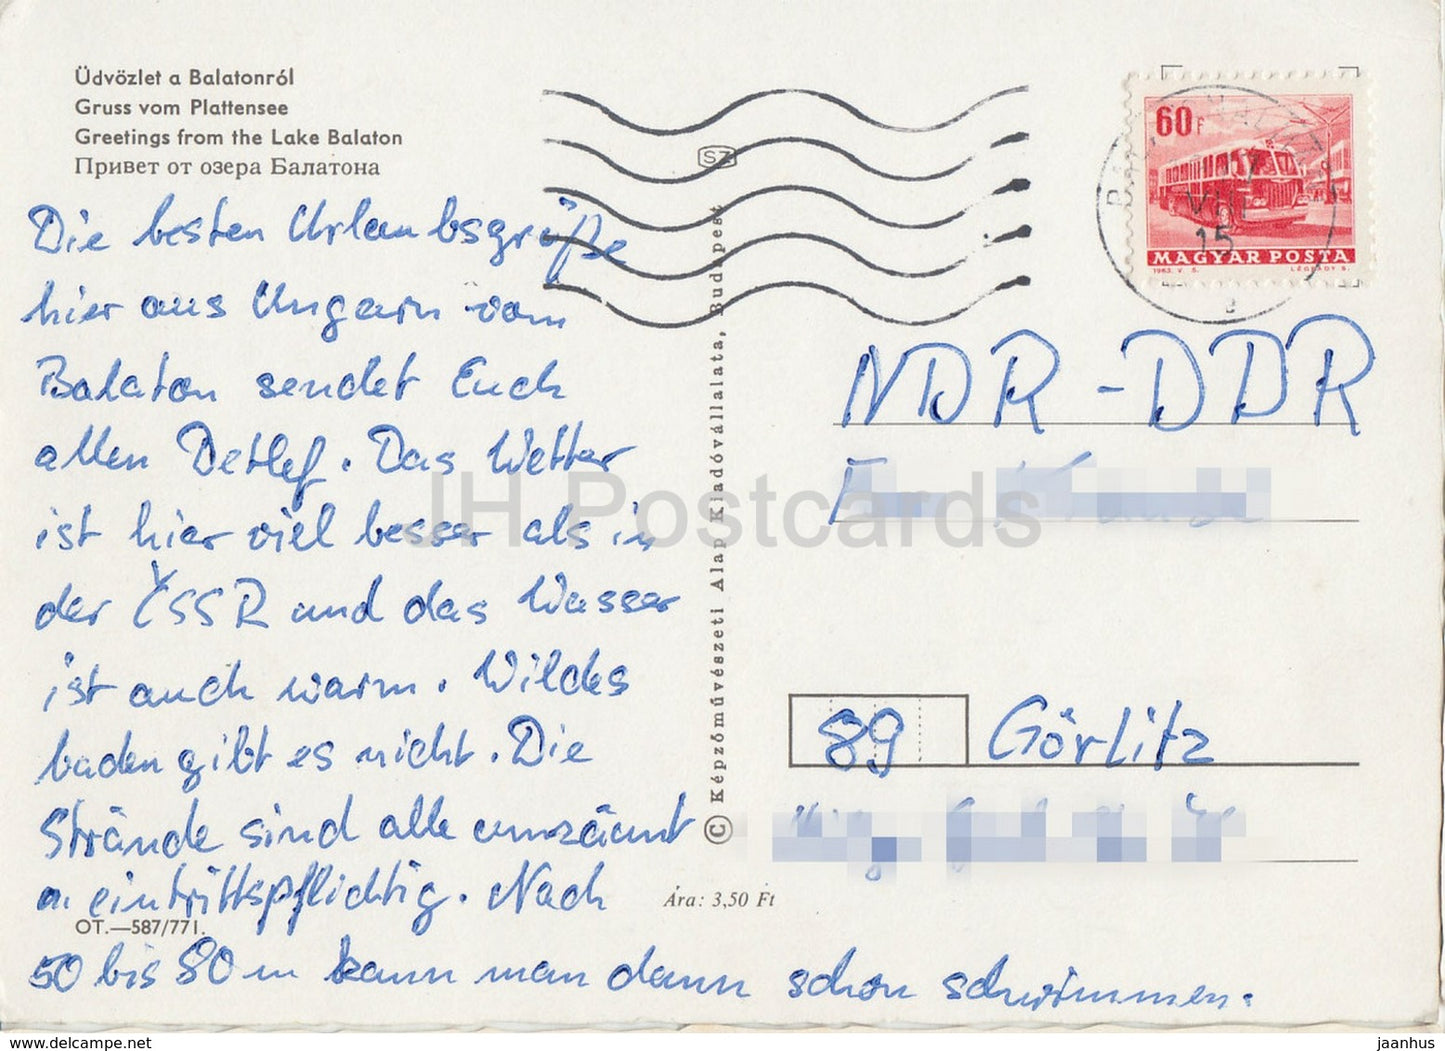 Üdvözlet a Balatonról
Gruss vom Plattensee
Greetings from the Lake Balaton
Привет от озера Балатона
Die besten Urlaubsgrüße
hier aus Ungarn vom
Balaton sendet Euch
allen Detlef. Das Wetter
ist hier viel besser als in
der ČSSR und das Wasser
ist auch warm. Wildes
baden gibt es nicht. Die
Strände sind alle umzäunt
u. eintrittspflichtig. Nach
50 bis 80 m kann man dann schon schwimmen.
OT.—587/771.
Ára: 3,50 Ft
© Képzőművészeti Alap Kiadóvállalata, Budapest
SZ
60 F
VIII
15
MAGYAR POSTA
1963. V. S.
LÉGRÁDY S.
NDR - DDR
89 Görlitz
JH Postcards
www.delcampe.net
jaanhus